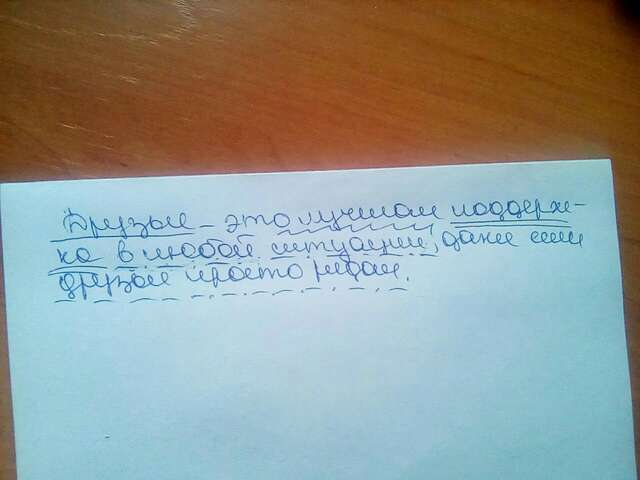 Друзья – это лучшая поддерж-
ка в любой ситуации, даже если
друзья просто рядом.